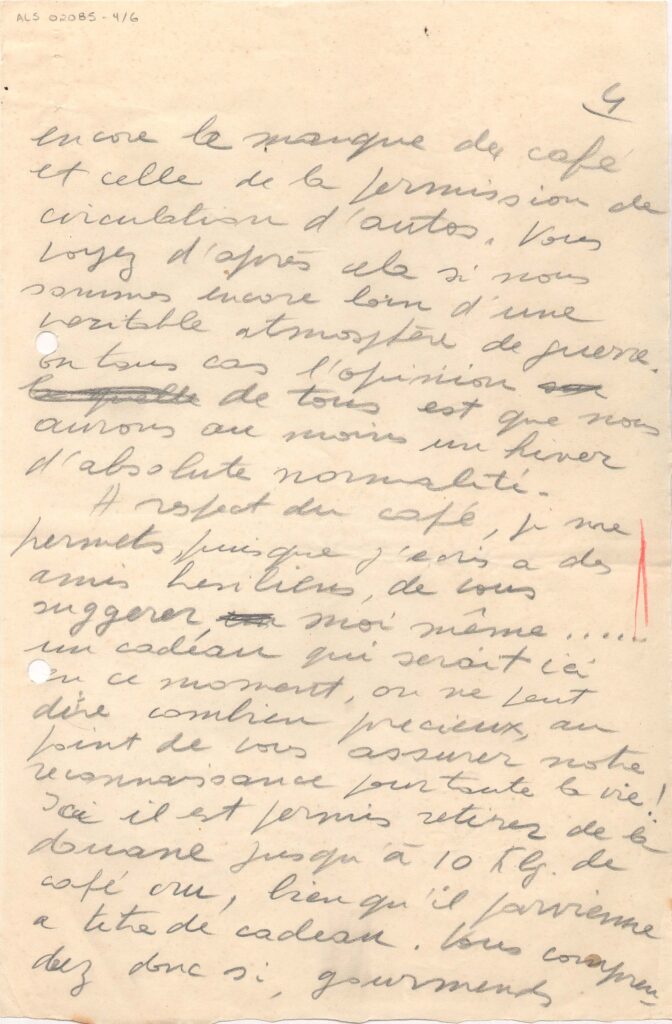 ALS 02085 - 4/6
4
encore le manque du café
et celle de la permission de
circulation d'autos. Vous
voyez d'après cela si nous
sommes encore loin d'une
veritable atmosfère de guerre.
en tous cas l'opinion
de tous est que nous
aurons au moins un hiver
d'absolute normalité.
A respect du café, je me
permets, puisque j'ecris a des
amis bresiliens, de vous
suggerer moi même......
un cadéau qui serait ici
en ce moment, on ne peut
dire combien precieux, au
point de vous assurer notre
reconnaissance pour toute la vie!
Ici il est permis retirer de la
douane jusqu'à 10 Klg. de
café cru, bien qu'il parvienne
a titre de cadeau. Vous compren-
dez donc si, gourmends